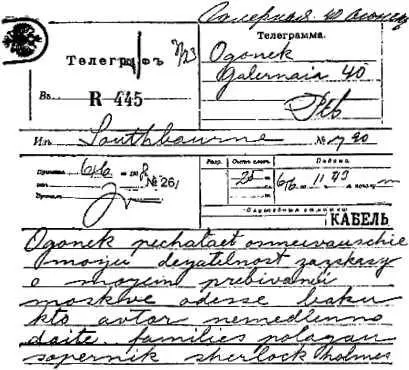 Галерная 40 Огонек
Телеграфъ
7/23
Телеграмма.
Ogonek
Galernaia 40
Ptb
Въ
R 445
Изъ Southbourne № 790
Принята 6/6 190
№ 261
Разр. Счетъ словъ. Подача
25 6/6 11 43
Служебныя отмѣтки
КАБЕЛЬ
Ogonek pechataet osmeivauschie
moyu deyatelnost zazakasy
o moyem prebivanii
moskve odesse baku
kto avtor nemedlenno
daite families polagau
sopernik sherlock holmes